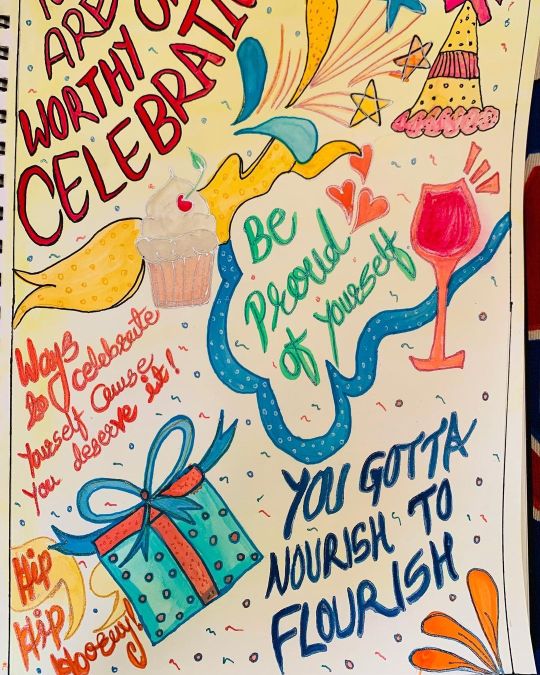 ARE
WORTHY
CELEBRATI
Be
Proud
of Yourself
Ways
to celebrate
Yourself Cause
You deserve it!
YOU GOTTA
NOURISH TO
FLOURISH
Hip
Hip
Hooray!